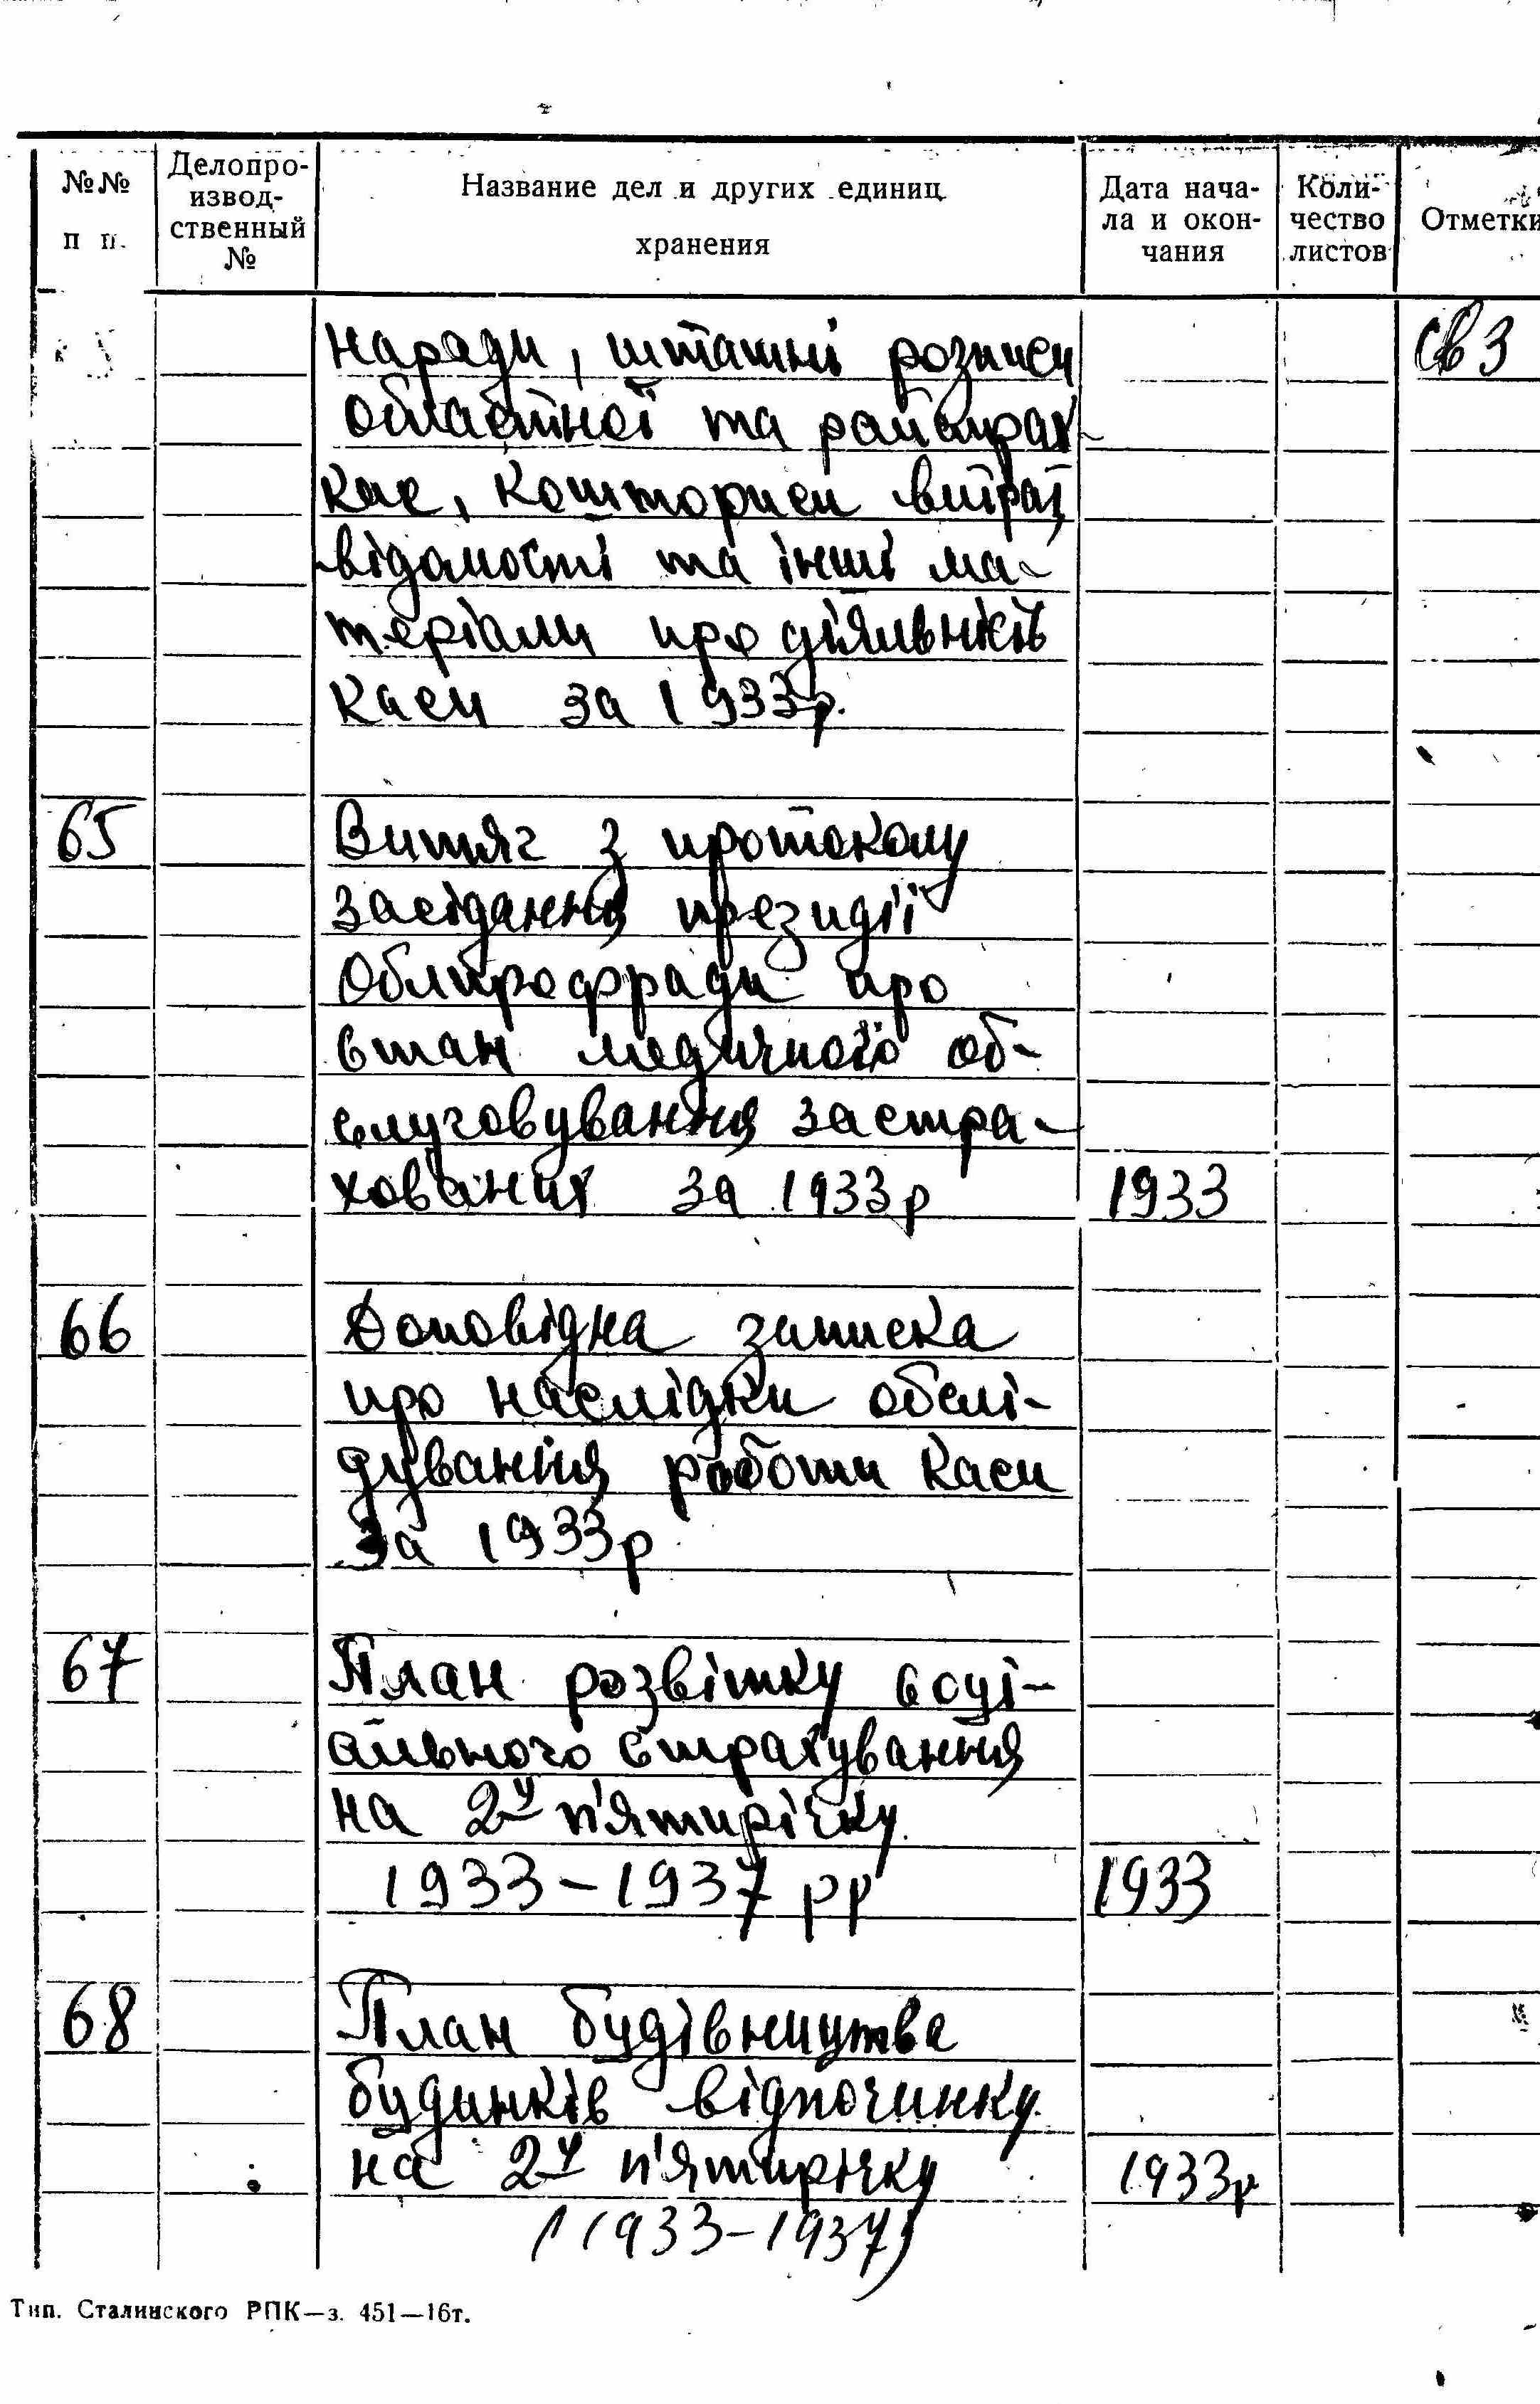 №№ п п.
Делопро-
извод-
ственный
№
Название дел и других единиц
хранения
Дата нача-
ла и окон-
чания
Коли-
чество
листов
Отметки
наради, штатні розписи св 3
обласної та райстрах
кас, кошториси витрат,
відомості та інші ма-
теріали про діяльність
каси за 1933р.
65 Витяг з протоколу
засідання президії
Облпрофради про
стан медичного об-
слуговування застра-
хованих за 1933р 1933
66 Доповідна записка
про наслідки обслі-
дування роботи каси
за 1933р
67 План розвітку соці-
ального страхування
на 2у п'ятирічку
1933-1937 рр 1933
68 План будівництва
будинків відпочинку
на 2у п'ятирічку 1933р
(1933-1937)
Тип. Сталинского РПК—з. 451—16т.